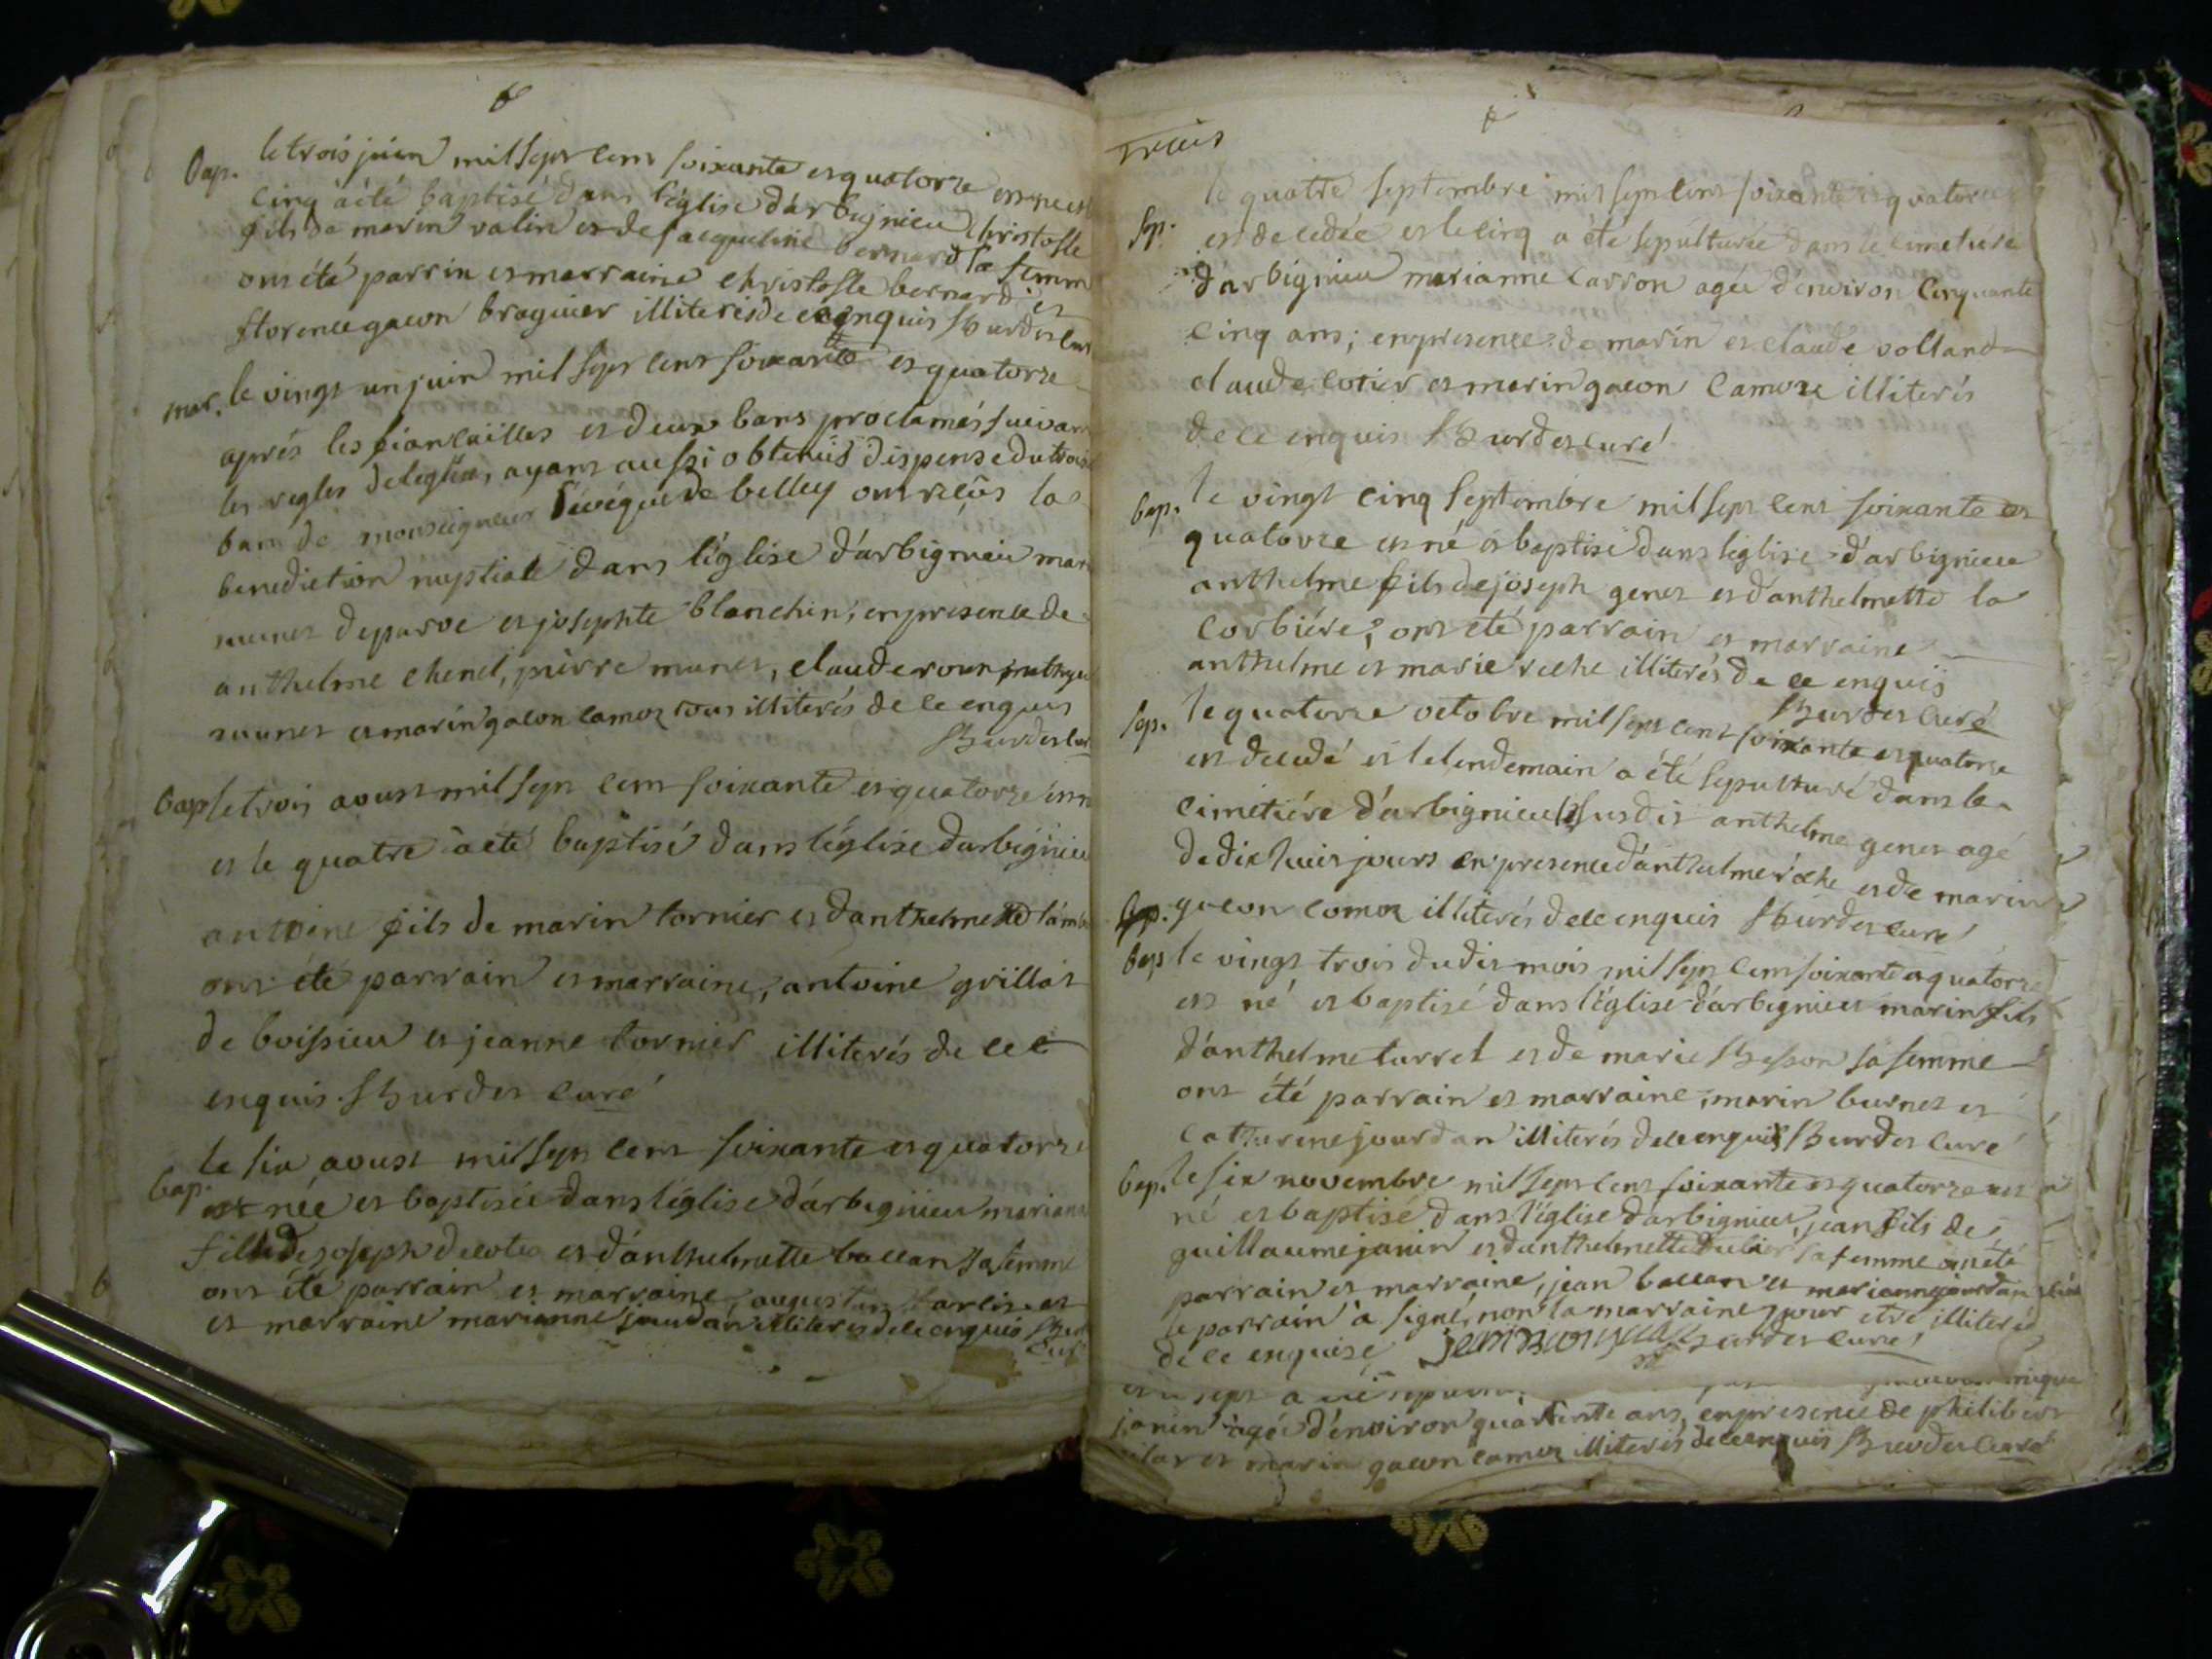 Bap. le trois juin mil sept cent soixante et quatorze est né et le
cinq à été baptisé dans l'église d'arbignieu christofle
fils de marin valin et de jacqueline bernard sa femme
ont été parrin et marraine christofle bernard et
florence gacon braguier illiterés de ce enquis Burdet curé
mar. le vingt un juin mil sept cent soixante et quatorze
aprés les fiancailles et deux bans proclamés suivant
les regles de leglise, ayant aussi obtenus dispense du trois
ban de monseigneur l'évéque de belley ont reçus la
benediction nuptiale dans l'église d'arbignieu marin
munet de parve et josephte blanchin, en presence de
anthelme chenel, pierre munet, claude
munet et marin gacon camoz tous illiterés de ce enquis
Burdet curé
Bap le trois aoust mil sept cent soixante et quatorze est né
et le quatre à été baptisé dans l'église d'arbignieu
antoine fils de marin tornier et d'anthelmette
ont été parrain et marraine, antoine grillat
de boissieu et jeanne tornier illiterés de ce
enquis. Burdet curé
le six aoust mil sept cent soixante et quatorze
bap. est née et baptisée dans l'église d'arbignieu mariane
fille de joseph et d'anthelmette ballan sa femme
ont été parrain et marraine, augustin et
et marraine marianne jourdan illiterés de ce enquis Burdet
curé
trois
le quatre septembre mil sept cent soixante et quatorze
sep. est decedée et le cinq a été sepulturée dans le cimetiére
d'arbignieu marianne carron agée d'environ cinquante
cinq ans; en presence de marin et claude volland
claude cotier et marin gacon camoz illiterés
de ce enquis Burdet curé
bap. le vingt cinq septembre mil sept cent soixante et
quatorze est né et baptisé dans léglise d'arbignieu
anthelme fils de joseph genet et d'anthelmette la
corbiére; ont été parrain et marraine
anthelme et marie reche illiterés de ce enquis
Burdet curé
sep. le quatorze octobre mil sept cent soixante et quatorze
est decedé et le lendemain a été sepulturé dans le
cimetiére d'arbignieu le susdit anthelme genet agé
de dix huit jours en presence d'anthelme réche et de marin
gacon camoz illiterés de ce enquis Burdet curé
bap le vingt trois dudit mois mil sept cent soixante et quatorze
est né et baptisé dans l'église d'arbignieu marin fils
d'anthelme turrel et de marie Besson sa femme
ont été parrain et marraine, marin burnet et
catherine jourdan illiterés de ce enquis Burdet curé
bap. le six novembre mil sept cent soixante et quatorze est
né et baptisé dans l'église d'arbignieu, jean fils de
guillaume janin et d'anthelmette sa femme ont été
parrain et marraine, jean ballan et marianne jourdan
le parrain à signé, non la marraine pour etre illiterée
de ce enquise Burdet curé
janin agée d'environ quarente ans, en presence de philibert
et marin gacon camoz illiterés de ce enquis Burdet curé